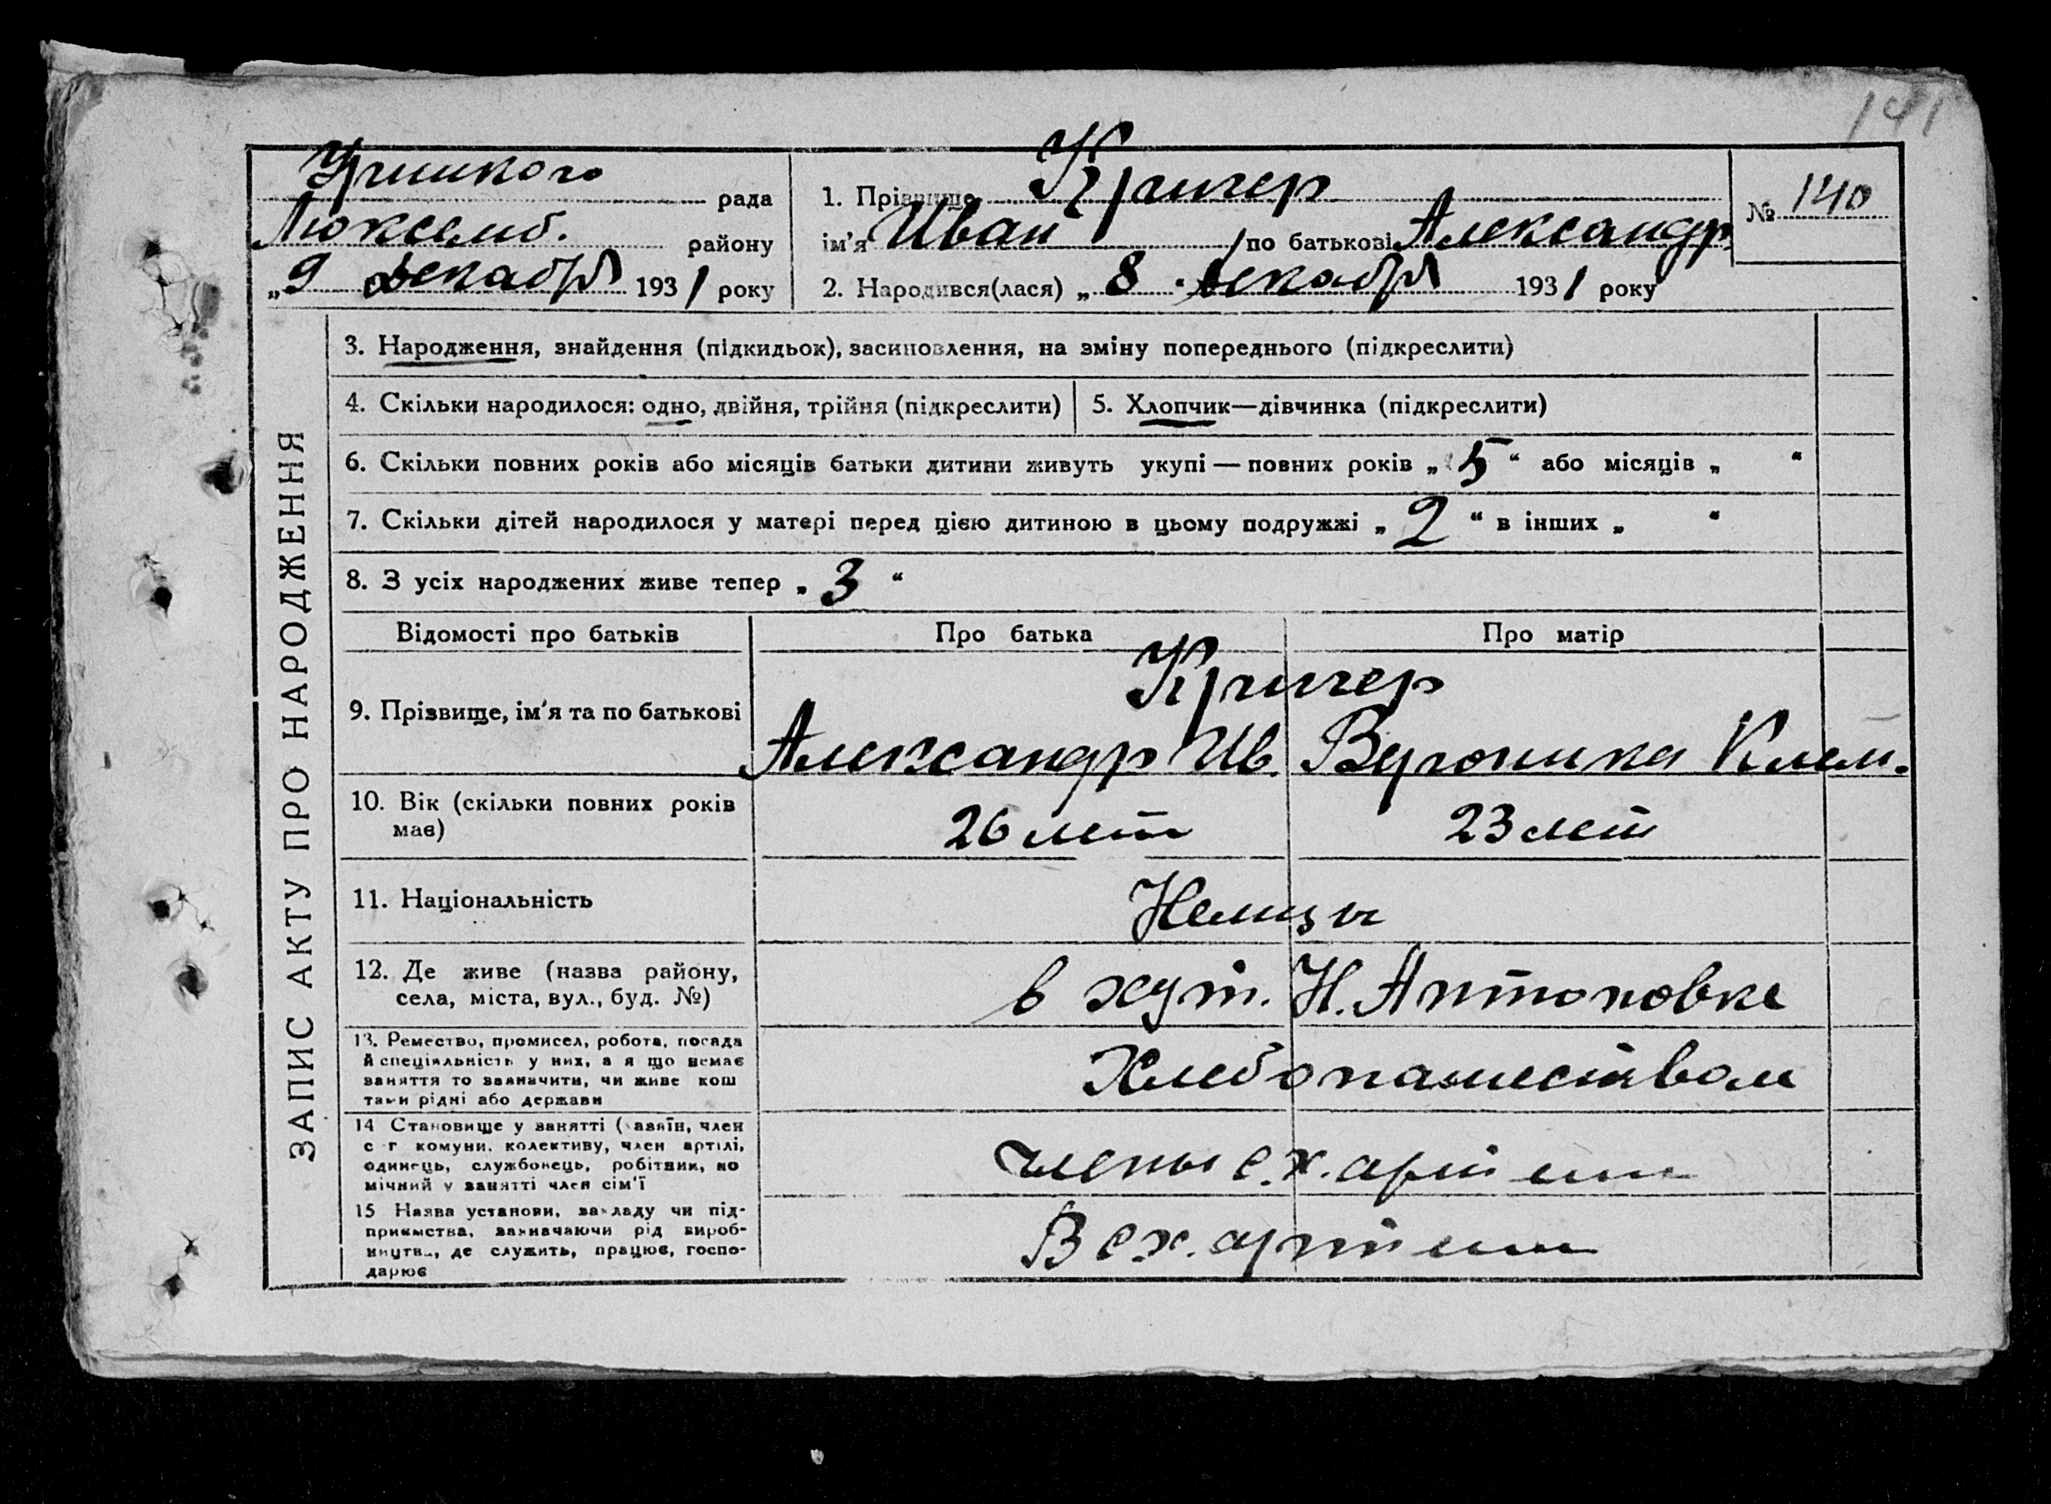 141
рада
Люксемб. району
„9 декабря 1931 року
1. Прізвище Кригер
ім'я Иван по батькові Александр.
2. Народився(лася) „ 8 декабря 1931 року
№ 140
ЗАПИС АКТУ ПРО НАРОДЖЕННЯ
3. Народження, знайдення (підкидьок), засиновлення, на зміну попереднього (підкреслити)
4. Скільки народилося: одно, двійня, трійня (підкреслити)
5. Хлопчик—дівчинка (підкреслити)
6. Скільки повних років або місяців батьки дитини живуть укупі — повних років „ 5 “ або місяців „ “
7. Скільки дітей народилося у матері перед цією дитиною в цьому подружжі „ 2 “ в інших „ “
8. З усіх народжених живе тепер „ 3 “
Відомості про батьків
Про батька
Про матір
9. Прізвище, ім'я та по батькові
Кригер
Александр Ив. Вероника Клем.
10. Вік (скільки повних років
має)
26 лет 23 лет
11. Національність
Немцы
12. Де живе (назва району,
села, міста, вул., буд. №)
в хут. Н. Антоновке
13. Ремество, промисел, робота, посада
й спеціяльність у них, а я що немає
заняття то зазначити, чи живе кош
тами рідні або держави
Хлебопашеством
14 Становище у занятті (хазяїн, член
с г комуни, колективу, член артілі,
одинець, службовець, робітник, по
мічний у занятті член сім'ї
члены с.х. артели
15 Назва установи, закладу чи під-
приємства, зазначаючи рід вироб-
ництва, де служить, працює, госпо-
дарює
В с.х. артели